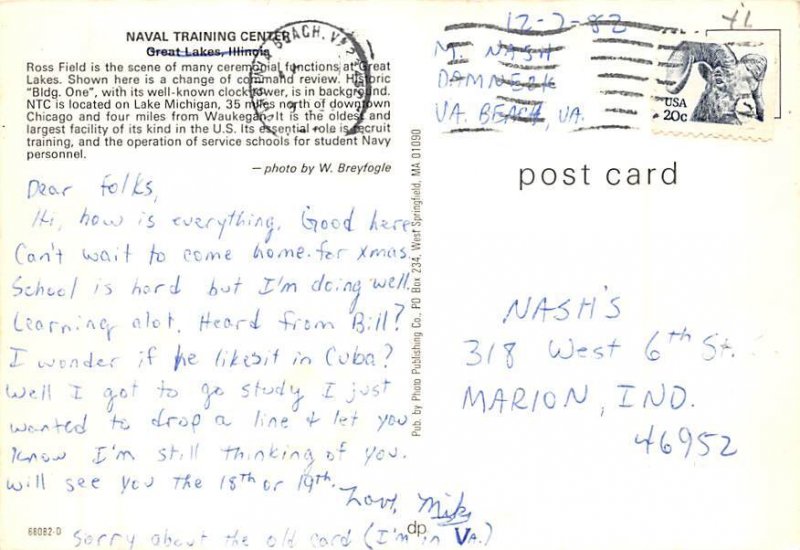 NAVAL TRAINING CENTER
Great Lakes, Illinois
Ross Field is the scene of many ceremonial functions at Great
Lakes. Shown here is a change of command review. Historic
"Bldg. One", with its well-known clock tower, is in background.
NTC is located on Lake Michigan, 35 miles north of downtown
Chicago and four miles from Waukegan. It is the oldest and
largest facility of its kind in the U.S. Its essential role is recruit
training, and the operation of service schools for student Navy
personnel.
— photo by W. Breyfogle
Dear folks,
Hi, how is everything. Good here
Can't wait to come home for xmas
School is hard but I'm doing well.
Learning alot. Heard from Bill?
I wonder if he likes it in Cuba?
Well I got to go study I just
wanted to drop a line & let you
know I'm still thinking of you.
Will see you the 18th or 19th.
Love, Mike
68082-D
Sorry about the old card (I'm in VA.)
Pub. by Photo Publishing Co., PO Box 234, West Springfield, MA 01090
dp
BEACH, VA
12-2-82
M. NASH
DAMNECK
VA. BEACH, VA.
USA
20c
post card
NASH'S
318 West 6th St.
MARION, IND.
46952